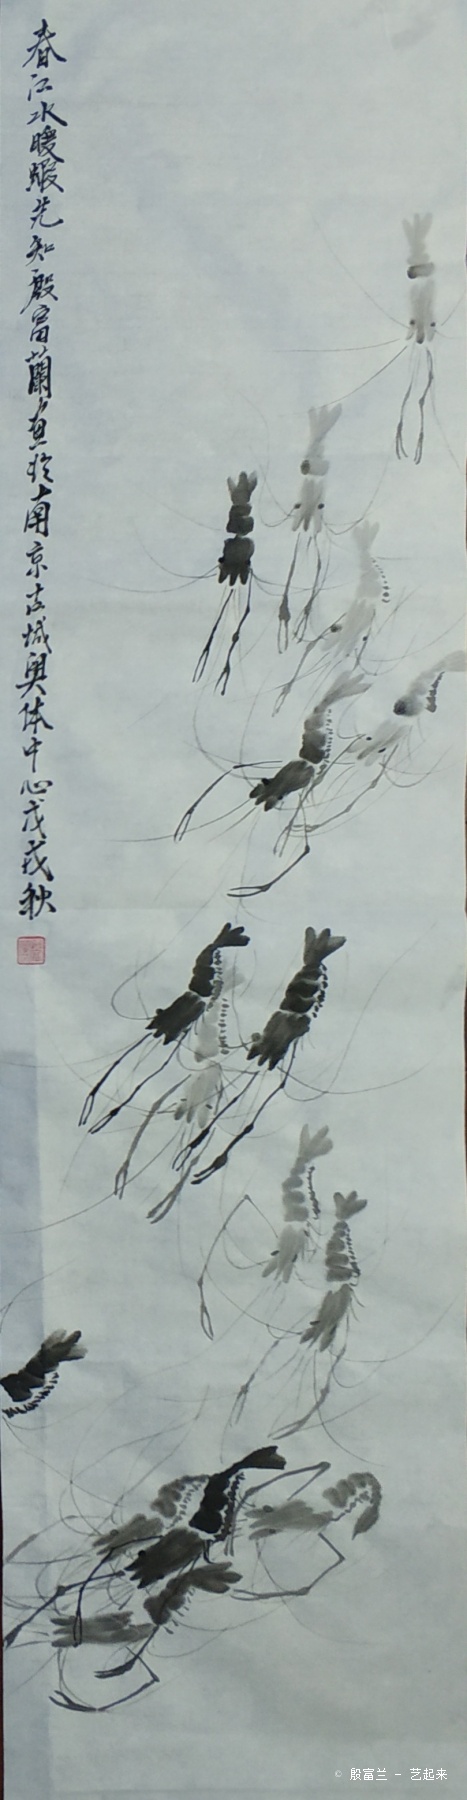 春江水暖蝦先知殷富蘭画於南京古城奥体中心戊戌秋
© 殷富兰 - 艺起来